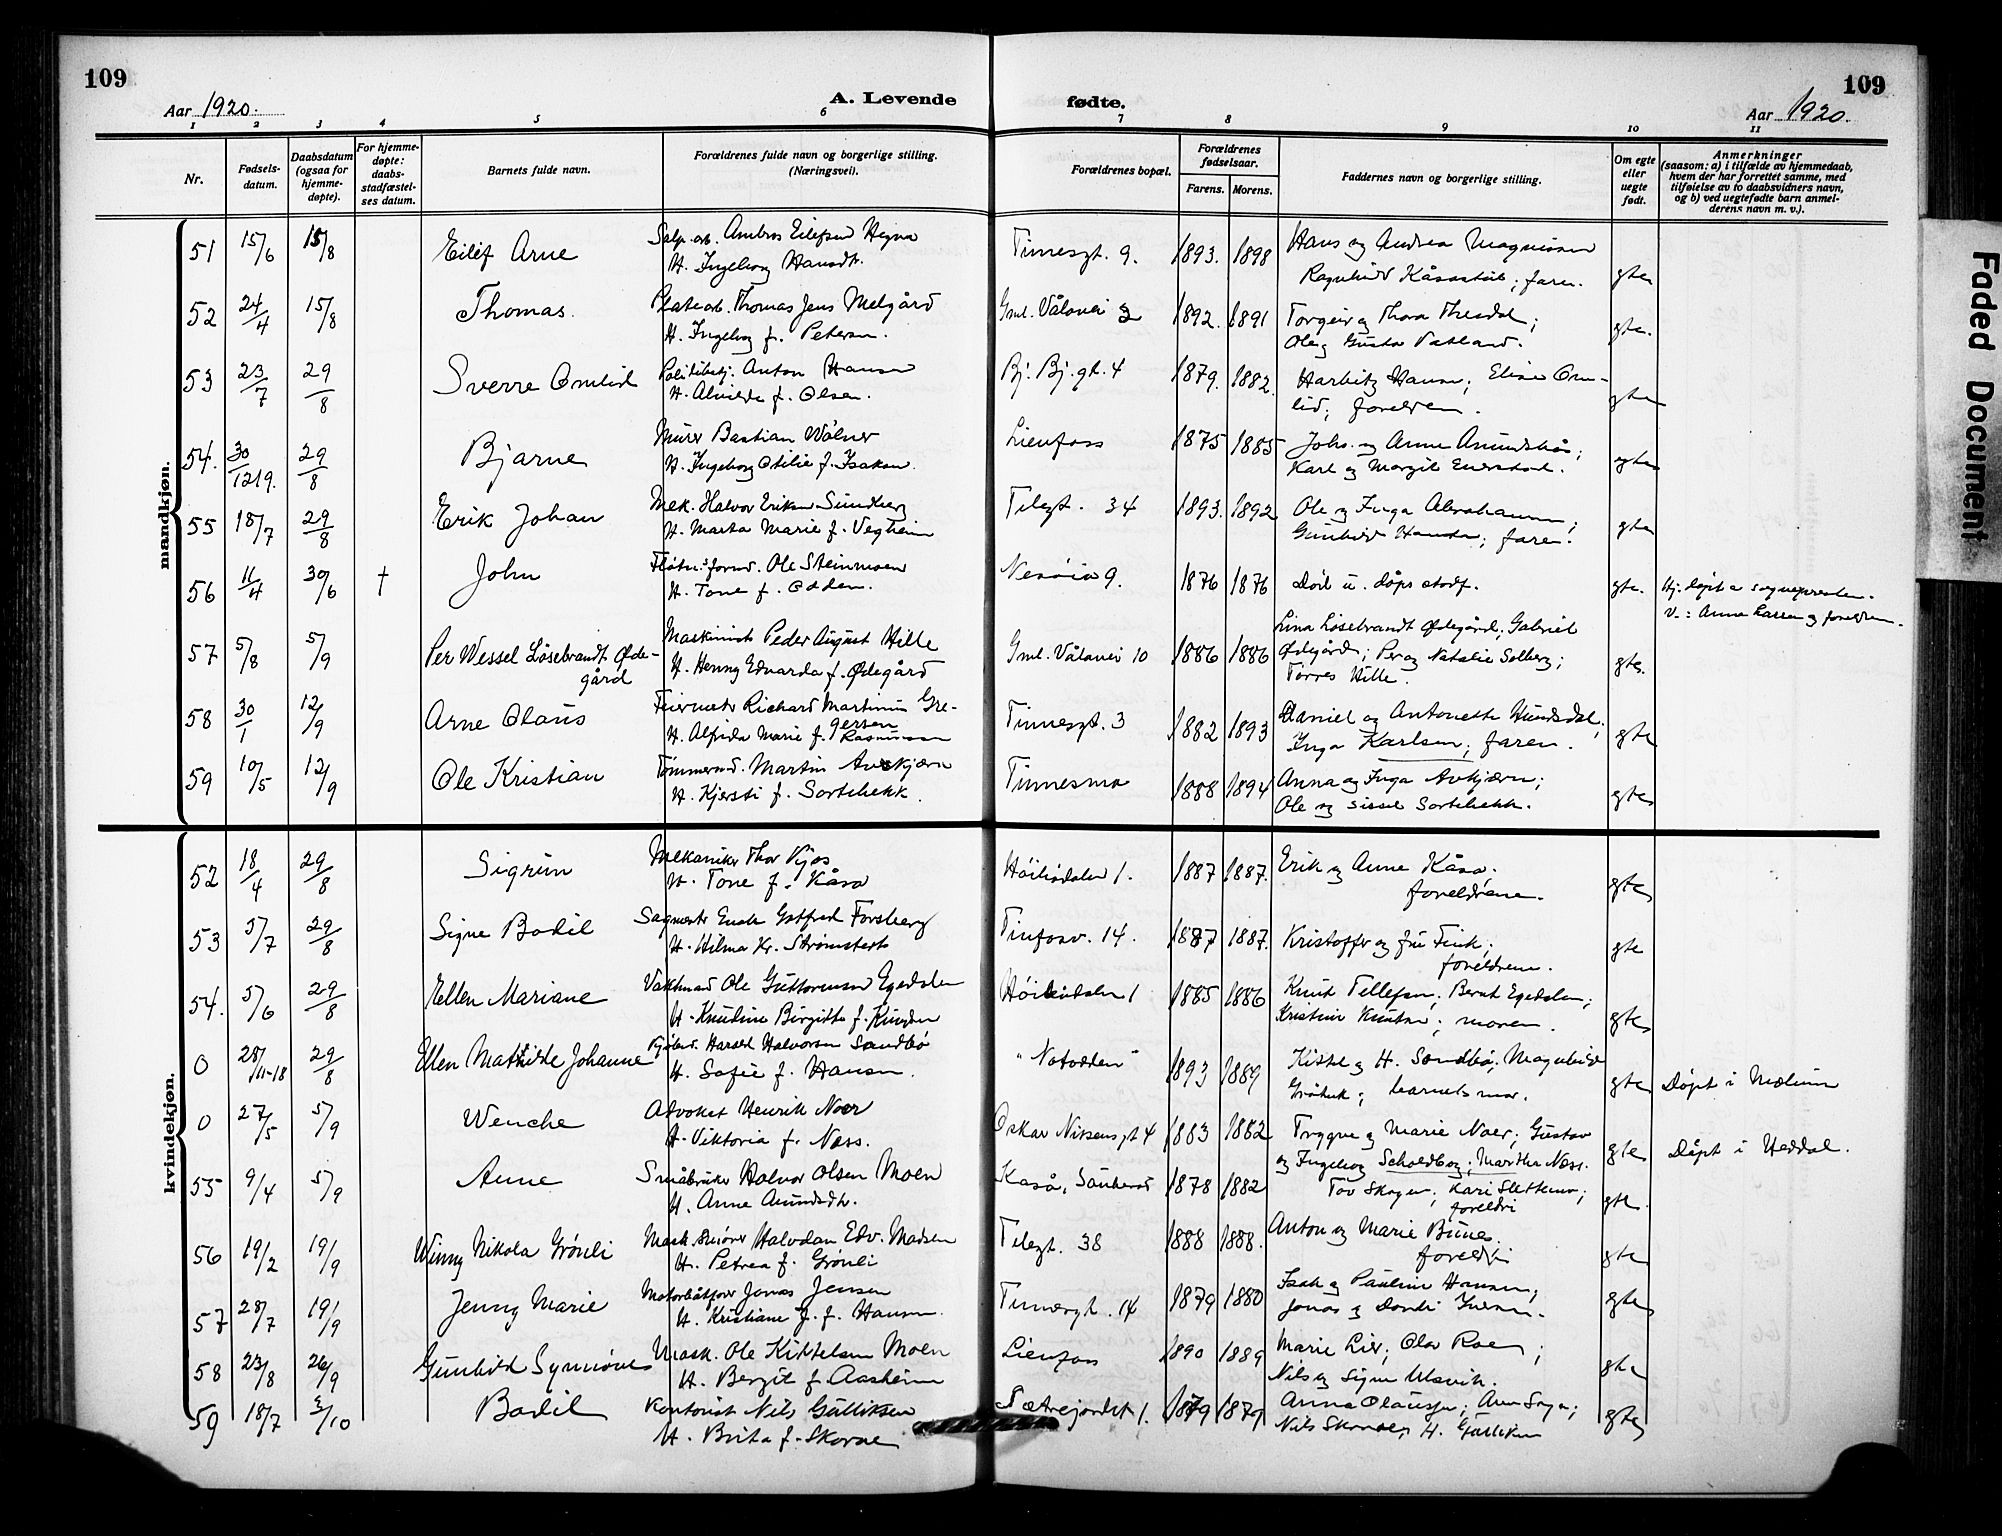 109
109
Aar 1920.
A. Levende
fødte.
Aar 1920.
1 2 3 4 5 6 7 8 9 10 11
Nr.
Fødsels-
datum.
Daabsdatum
(ogsaa for
hjemme-
døpte).
For hjemme-
døpte:
daabs-
stadfæstel-
ses datum.
Barnets fulde navn.
Forældrenes fulde navn og borgerlige stilling.
(Næringsvei).
Forældrenes bopæl.
Forældrenes
fødselsaar.
Farens. Morens.
Faddernes navn og borgerlige stilling.
Om egte
eller
uegte
født.
Anmerkninger
(saasom: a) i tilfælde av hjemmedaab,
hvem der har forrettet samme, med
tilføielse av to daabsvidners navn,
og b) ved uegtefødte barn anmel-
derens navn m. v.).
mandkjøn.
51 15/6 15/8 Eilef Arne Salp. arb. Ambros Eilefsen Hegna Tinnesgt. 9. 1893. 1898 Hans og Andrea Magnussen
H. Ingeborg Hansdt. Ragnhild ; faren. gte
52 24/4 15/8 Thomas. Platearb. Thomas Jens Melgård Gml. Vålavei 2 1892. 1891 Torgeir og Thora ;
H. Ingeborg f. Petersen. Ole og Gusta Vatland. gte.
53 23/7 29/8 Sverre Omlid Politibetj. Anton Hansen Bj. Bj. gt. 4 1879. 1882. Harbitz Hansen; Elise Om-
H. Alvilde f. Olsen. lid; foreldren. gte
54. 30/12 19. 29/8 Bjarne Murer Bastian Wålner Lienfoss 1875 1885 Johs. og Anne Amundsbås;
H. Ingeborg Otilie f. Isaksen. Karl og Margit Enerstad. gte
55 18/7 29/8 Erik Johan Mek. Halvor Eriksen Sundberg Telegt. 34 1893. 1892 Ole og Inga Abrahamsen;
H. Marta Marie f. Vegheim Gunhild ; faren. gte
56 11/4 30/6 † John Fløtn.s form. Ole Steinmoen Nesøia 9. 1876 1876 Død u. dåps stadf. gte. Hj. døpt a sognepresten.
H. Tone f. Odden. V.: Anna Larsen og foreldren.
57 5/8 5/9 Per Wessel Løsebrandt Øde- Maskinist Peder August Hille Gml. Vålavei 10 1886 1886 Lina Løsebrandt Ødegård; Gabriel
gård H. Henny Edvarda f. Ødegård Ødegård; Per og Natalie Solberg;
Torres Hille. gte.
58 30/1 12/9 Arne Olaus Feiermstr Richard Martinius Gre- Tinnesgt. 3 1882 1893 Daniel og Antonette Hundsdal;
gersen
H. Alfrida Marie f. Rasmussen Inga Karlsen; faren. gte
59 10/5 12/9 Ole Kristian Tømmerm. Martin Avskjærn Tinnesmo 1888 1894 Anna og Inga Avkjærn;
H. Kjersti f. Sortebekk. Ole og Sissel Sortebekk. gte
kvindekjøn.
52 18/4 29/8 Sigrun Mekaniker Thor Vjos Høiliedalen 1. 1887 1887. Erik og Anne Kåsa;
H. Tone f. Kåsa foreldrene. gte
53 5/7 29/8 Signe Bodil Sagmestr Enok Gotfred Forsberg Tinfosv. 14. 1887 1887. Kristoffer og fru Fink;
H. Hilma Kr. Strømstert foreldrene. gte
54. 5/6 29/8 Ellen Mariane Vaktmand Ole Guttormsen Egedalen Høiliedalen 1 1885 1886 Knut Tellefsen; Bernt Egedalen;
H. Knudine Birgitte f. Knudsen Kristine Knutsen; moren. gte
0 28/11-18 29/8 Ellen Mathilde Johanne Kjøbmd. Harald Halvorsen Sandbø "Notodden" 1893 1889 Kittil og H. Sandbø; Magnhild
H. Sofie f. Hansen. ; barnets mor. gte Døpt i Mælum
0 27/5 5/9 Wenche Advokat Henrik Noer Oskar Nilsens gt 4 1883 1882 Trygve og Marie Noer; Gustav
H. Viktoria f. Næss. og Ingeborg Scholdborg; Martha Næss. gte Døpt i Heddal.
55 9/4 5/9 Anne Småbruker Halvor Olsen Moen Kåså, Sauherad 1878 1882 Tov Skogen; Kari Slettemo;
H. Anne Amundsdtr. foreldri gte
56 19/2 19/9 Winny Nikola Grønli Mask. smører Halvdan Edv. Madsen Telegt. 38 1888 1888. Anton og Marie Bunes.
H. Petrea f. Grønli foreldri gte
57 28/7 19/9 Jenny Marie Motorbåtfører Jonas Jensen Tinnesgt. 14 1879 1880 Isak og Pauline Hansen;
H. Kristiane J. f. Hansen. Jonas og Dorthi Iversen. gte
58 23/8 26/9 Gunhild Synnøve Mask. Ole Kittelsen Moen Lienfoss 1890 1889 Marie Lier; Olav Roe ;
H. Bergit f. Aasheim Nils og Signe Ulsvik. gte
59 18/7 3/10 Bodil Kontorist Nils Gulliksen Sætrejordet 1. 1879 1879 Anna Olausen; Anne Saga;
H. Brita f. Skorve Nils Skorve; H. Gulliksen gte
Faded Document